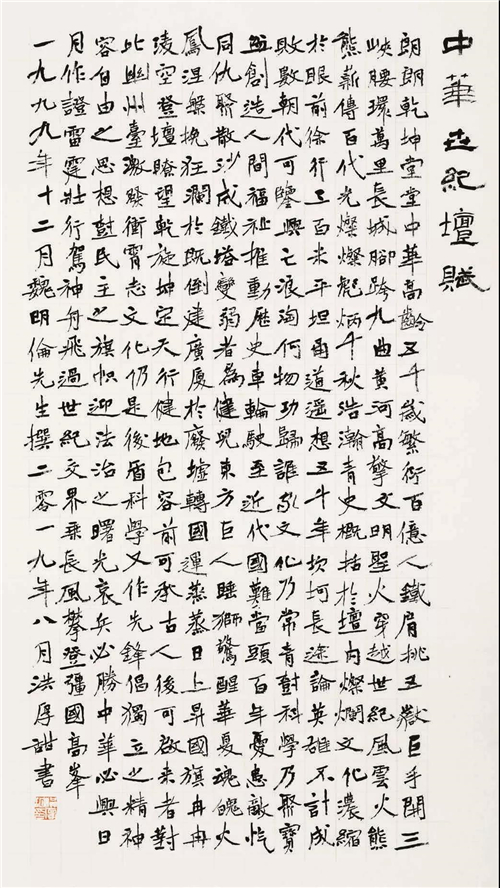 中華世紀壇賦
朗朗乾坤堂堂中華高齡五千歲繁衍百億人鐵肩挑五嶽巨手開三
峽腰環萬里長城腳跨九曲黃河高擎文明聖火穿越世紀風雲火熊
熊薪傳百代光燦燦彪炳千秋浩瀚青史概括於壇內燦爛文化濃縮
於眼前徐行三百米平坦甬道遥想五千年坎坷長途論英雄不計成
敗數朝代可鑒興亡浪淘何物功歸誰家文化乃常青樹科學乃聚寶
盆創造人間福祉推動歷史車輪駛至近代國難當頭百年憂患敵愾
同仇聚散沙成鐵塔變弱者為健兒東方巨人睡獅驚醒華夏魂魄火
鳳涅槃挽狂瀾於既倒建廣廈於廢墟轉國運蒸蒸日上昇國旗冉冉
淩空登壇瞭望乾旋坤定天行健地包容前可承古人後可啟來者對
比幽州臺激發衝霄志文化仍是後盾科學又作先鋒倡獨立之精神
容自由之思想鼓民主之旗幟迎法治之曙光哀兵必勝中華必興日
月作證雷霆壯行駕神舟飛過世紀交界乘長風攀登彊國高峯
一九九九年十二月魏明倫先生撰二零一九年八月洪厚甜書